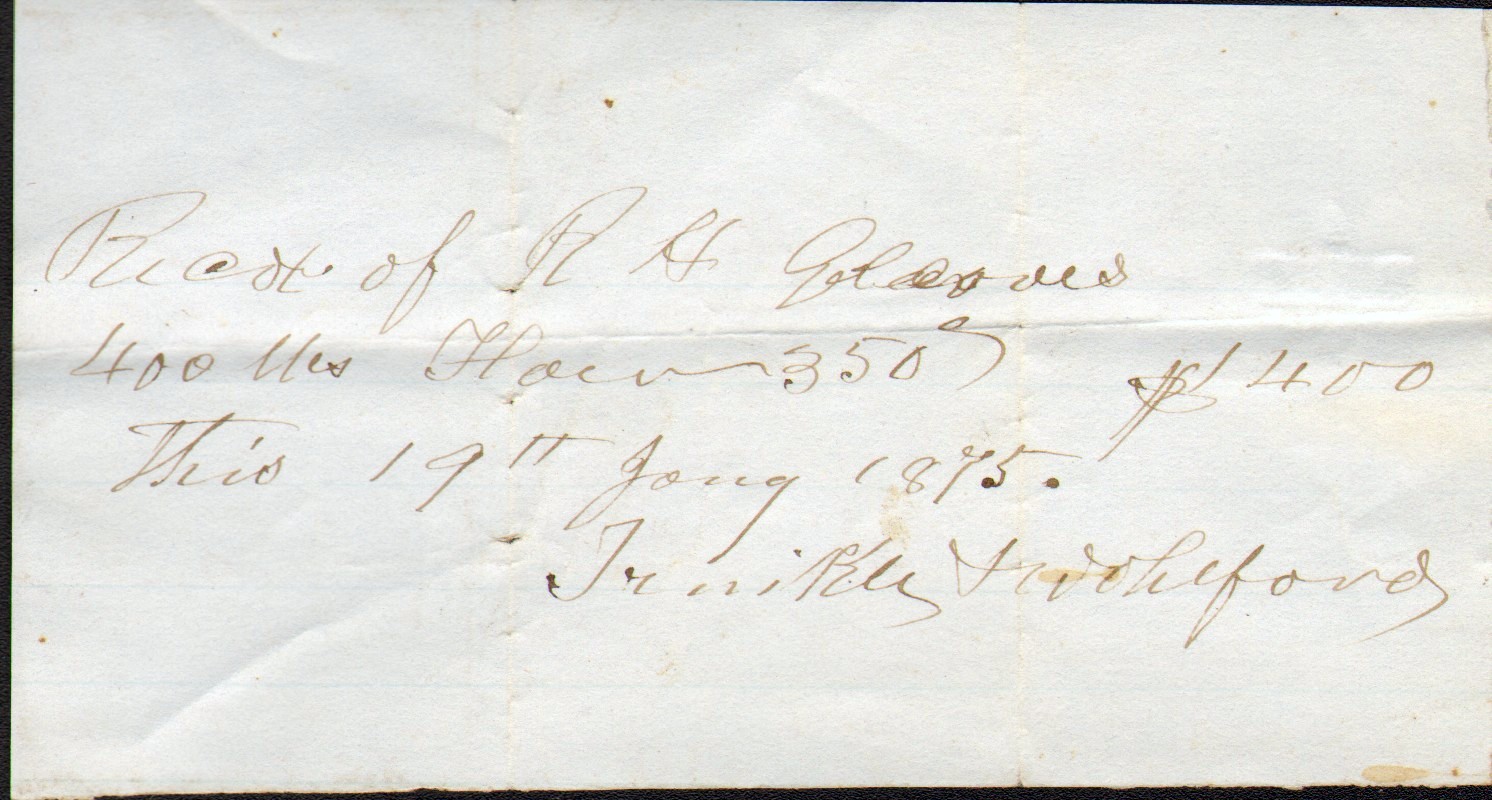 Recd of R H Gleaves
400 lbs Flour 350 $ 400
This 19th Jany 1875.
Trinkle & Wohlford